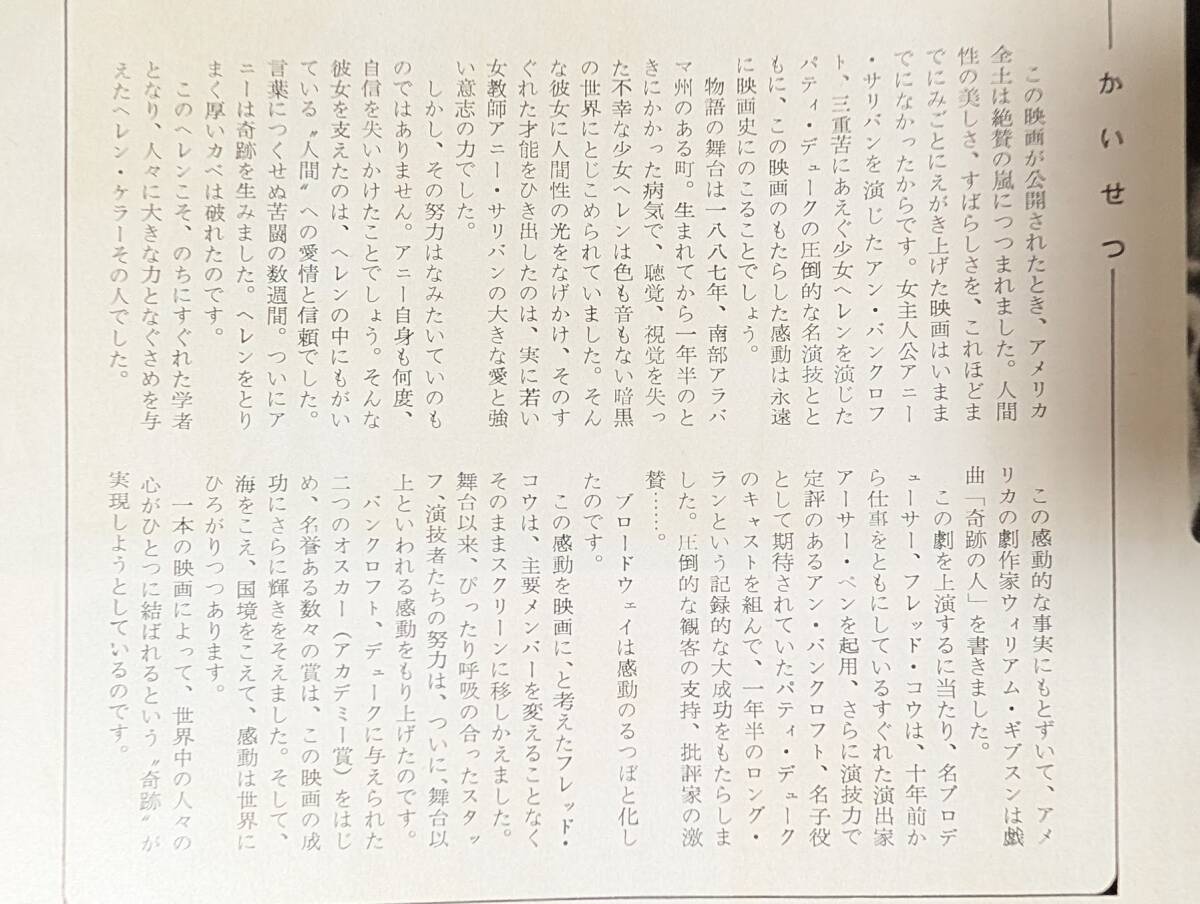 かいせつ
この映画が公開されたとき、アメリカ
全土は絶賛の嵐につつまれました。人間
性の美しさ、すばらしさを、これほどま
でにみごとにえがき上げた映画はいまま
でになかったからです。女主人公アニー
・サリバンを演じたアン・バンクロフ
ト、三重苦にあえぐ少女ヘレンを演じた
パティ・デュークの圧倒的な名演技とと
もに、この映画のもたらした感動は永遠
に映画史にのこることでしょう。
物語の舞台は一八八七年、南部アラバ
マ州のある町。生まれてから一年半のと
きにかかった病気で、聴覚、視覚を失っ
た不幸な少女ヘレンは色も音もない暗黒
の世界にとじこめられていました。そん
な彼女に人間性の光をなげかけ、そのす
ぐれた才能をひき出したのは、実に若い
女教師アニー・サリバンの大きな愛と強
い意志の力でした。
しかし、その努力はなみたいていのも
のではありません。アニー自身も何度、
自信を失いかけたことでしょう。そんな
彼女を支えたのは、ヘレンの中にもがい
ている〝人間〟への愛情と信頼でした。
言葉につくせぬ苦闘の数週間。ついにア
ニーは奇跡を生みました。ヘレンをとり
まく厚いカベは破れたのです。
このヘレンこそ、のちにすぐれた学者
となり、人々に大きな力となぐさめを与
えたヘレン・ケラーその人でした。
この感動的な事実にもとずいて、アメ
リカの劇作家ウィリアム・ギブスンは戯
曲「奇跡の人」を書きました。
この劇を上演するに当たり、名プロデ
ューサー、フレッド・コウは、十年前か
ら仕事をともにしているすぐれた演出家
アーサー・ペンを起用、さらに演技力で
定評のあるアン・バンクロフト、名子役
として期待されていたパティ・デューク
のキャストを組んで、一年半のロング・
ランという記録的な大成功をもたらしま
した。圧倒的な観客の支持、批評家の激
賛……。
ブロードウェイは感動のるつぼと化し
たのです。
この感動を映画に、と考えたフレッド・
コウは、主要メンバーを変えることなく
そのままスクリーンに移しかえました。
舞台以来、ぴったり呼吸の合ったスタッ
フ、演技者たちの努力は、ついに、舞台以
上といわれる感動をもり上げたのです。
バンクロフト、デュークに与えられた
二つのオスカー（アカデミー賞）をはじ
め、名誉ある数々の賞は、この映画の成
功にさらに輝きをそえました。そして、
海をこえ、国境をこえて、感動は世界に
ひろがりつつあります。
一本の映画によって、世界中の人々の
心がひとつに結ばれるという〝奇跡〟が
実現しようとしているのです。